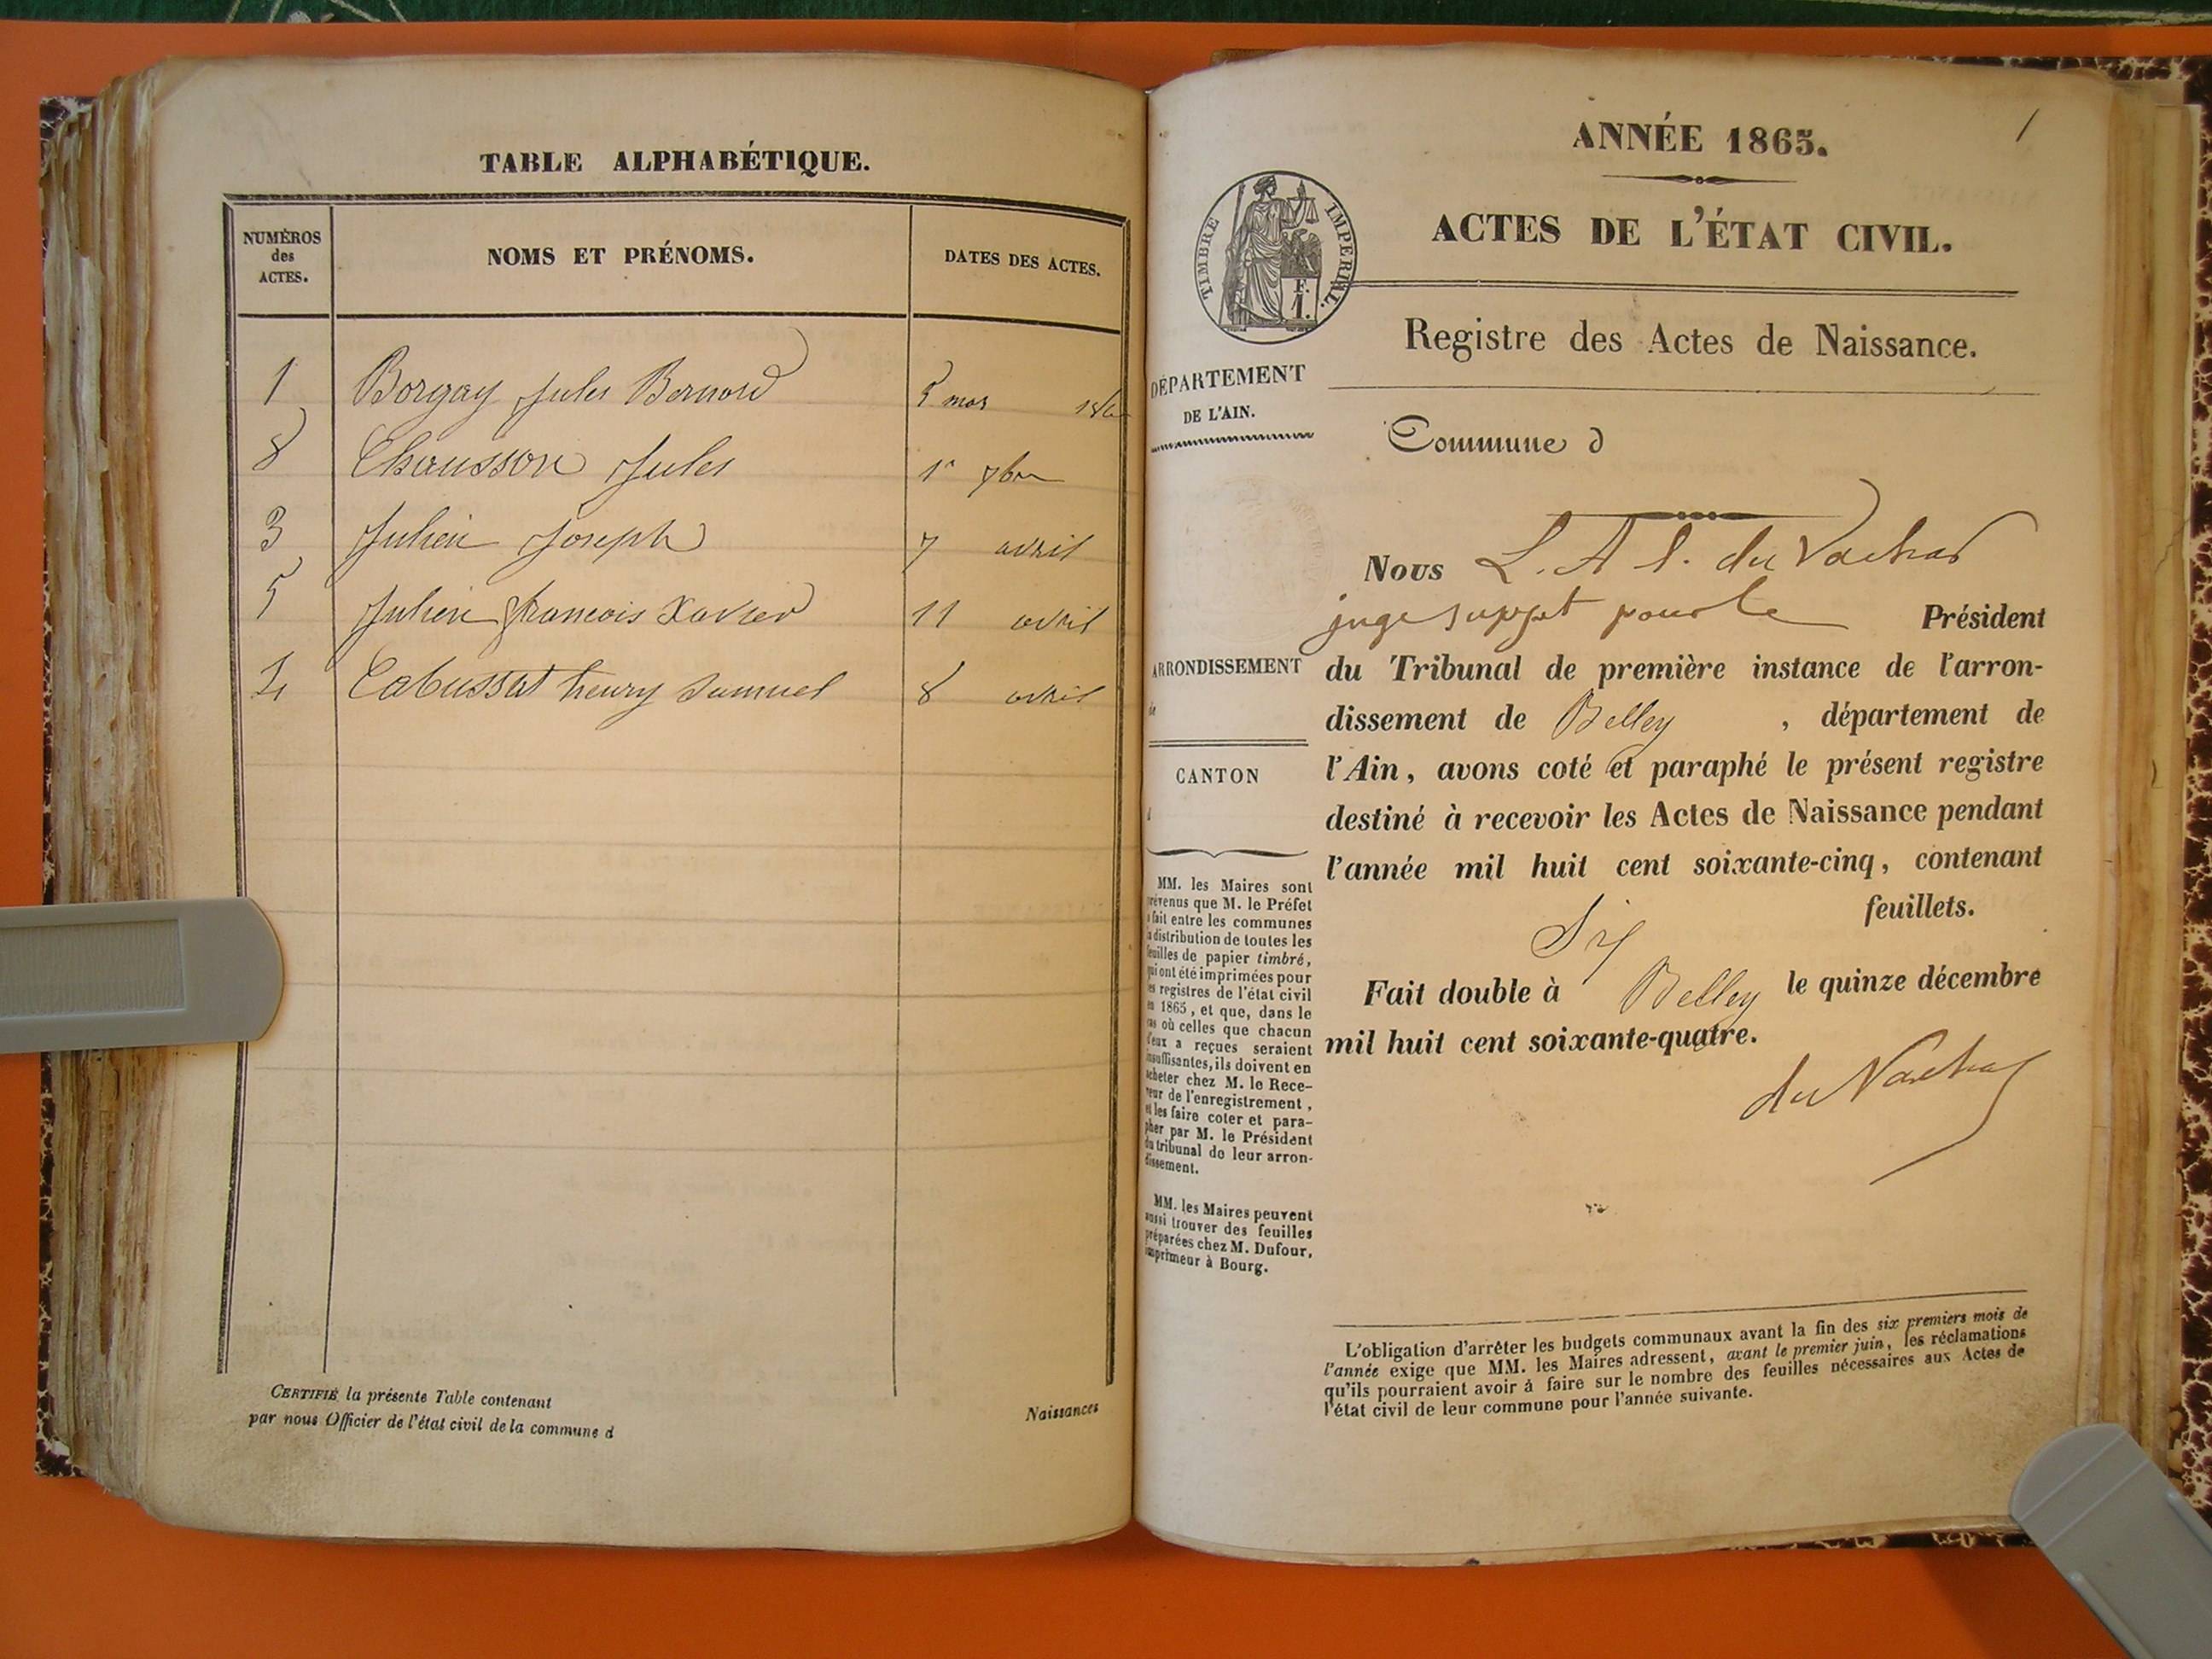 TABLE ALPHABÉTIQUE.
NUMÉROS
des
ACTES.
NOMS ET PRÉNOMS.
DATES DES ACTES.
1 Borgay Jules Bernard 5 mars
8 Chausson Jules 1r 7bre
3 Julien Joseph 7 avril
5 Julien françois Xavier 11 avril
4 Cabussat henry Samuel 8 avril
CERTIFIÉ la présente Table contenant Naissances
par nous Officier de l'état civil de la commune d
1
ANNÉE 1865.
ACTES DE L'ÉTAT CIVIL.
TIMBRE IMPERIAL.
F.
1.
Registre des Actes de Naissance.
DÉPARTEMENT
DE L'AIN.
Commune d
Nous L. A du Vachat
juge supplt pour le Président
ARRONDISSEMENT
de
du Tribunal de première instance de l'arron-
dissement de Belley , département de
l'Ain, avons coté et paraphé le présent registre
destiné à recevoir les Actes de Naissance pendant
l'année mil huit cent soixante-cinq, contenant
Six feuillets.
Fait double à Belley le quinze décembre
mil huit cent soixante-quatre.
du Vachat
CANTON
d
MM. les Maires sont
prévenus que M. le Préfet
a fait entre les communes
la distribution de toutes les
feuilles de papier timbré,
qui ont été imprimées pour
les registres de l'état civil
en 1865, et que, dans le
cas où celles que chacun
d'eux a reçues seraient
insuffisantes, ils doivent en
acheter chez M. le Rece-
veur de l'enregistrement,
et les faire coter et para-
pher par M. le Président
du tribunal de leur arron-
dissement.
MM. les Maires peuvent
aussi trouver des feuilles
préparées chez M. Dufour,
imprimeur à Bourg.
L'obligation d'arrêter les budgets communaux avant la fin des six premiers mois de
l'année exige que MM. les Maires adressent, avant le premier juin, les réclamations
qu'ils pourraient avoir à faire sur le nombre des feuilles nécessaires aux Actes de
l'état civil de leur commune pour l'année suivante.